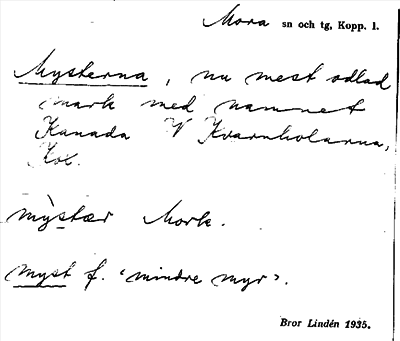 Mora sn och tg, Kopp. l.
Mysterna, nu mest odlad
mark med namnet
Kanada V Kvarnholarna,
mỳstær Mork.
myst f. 'mindre myr'.
Bror Lindén 1935.